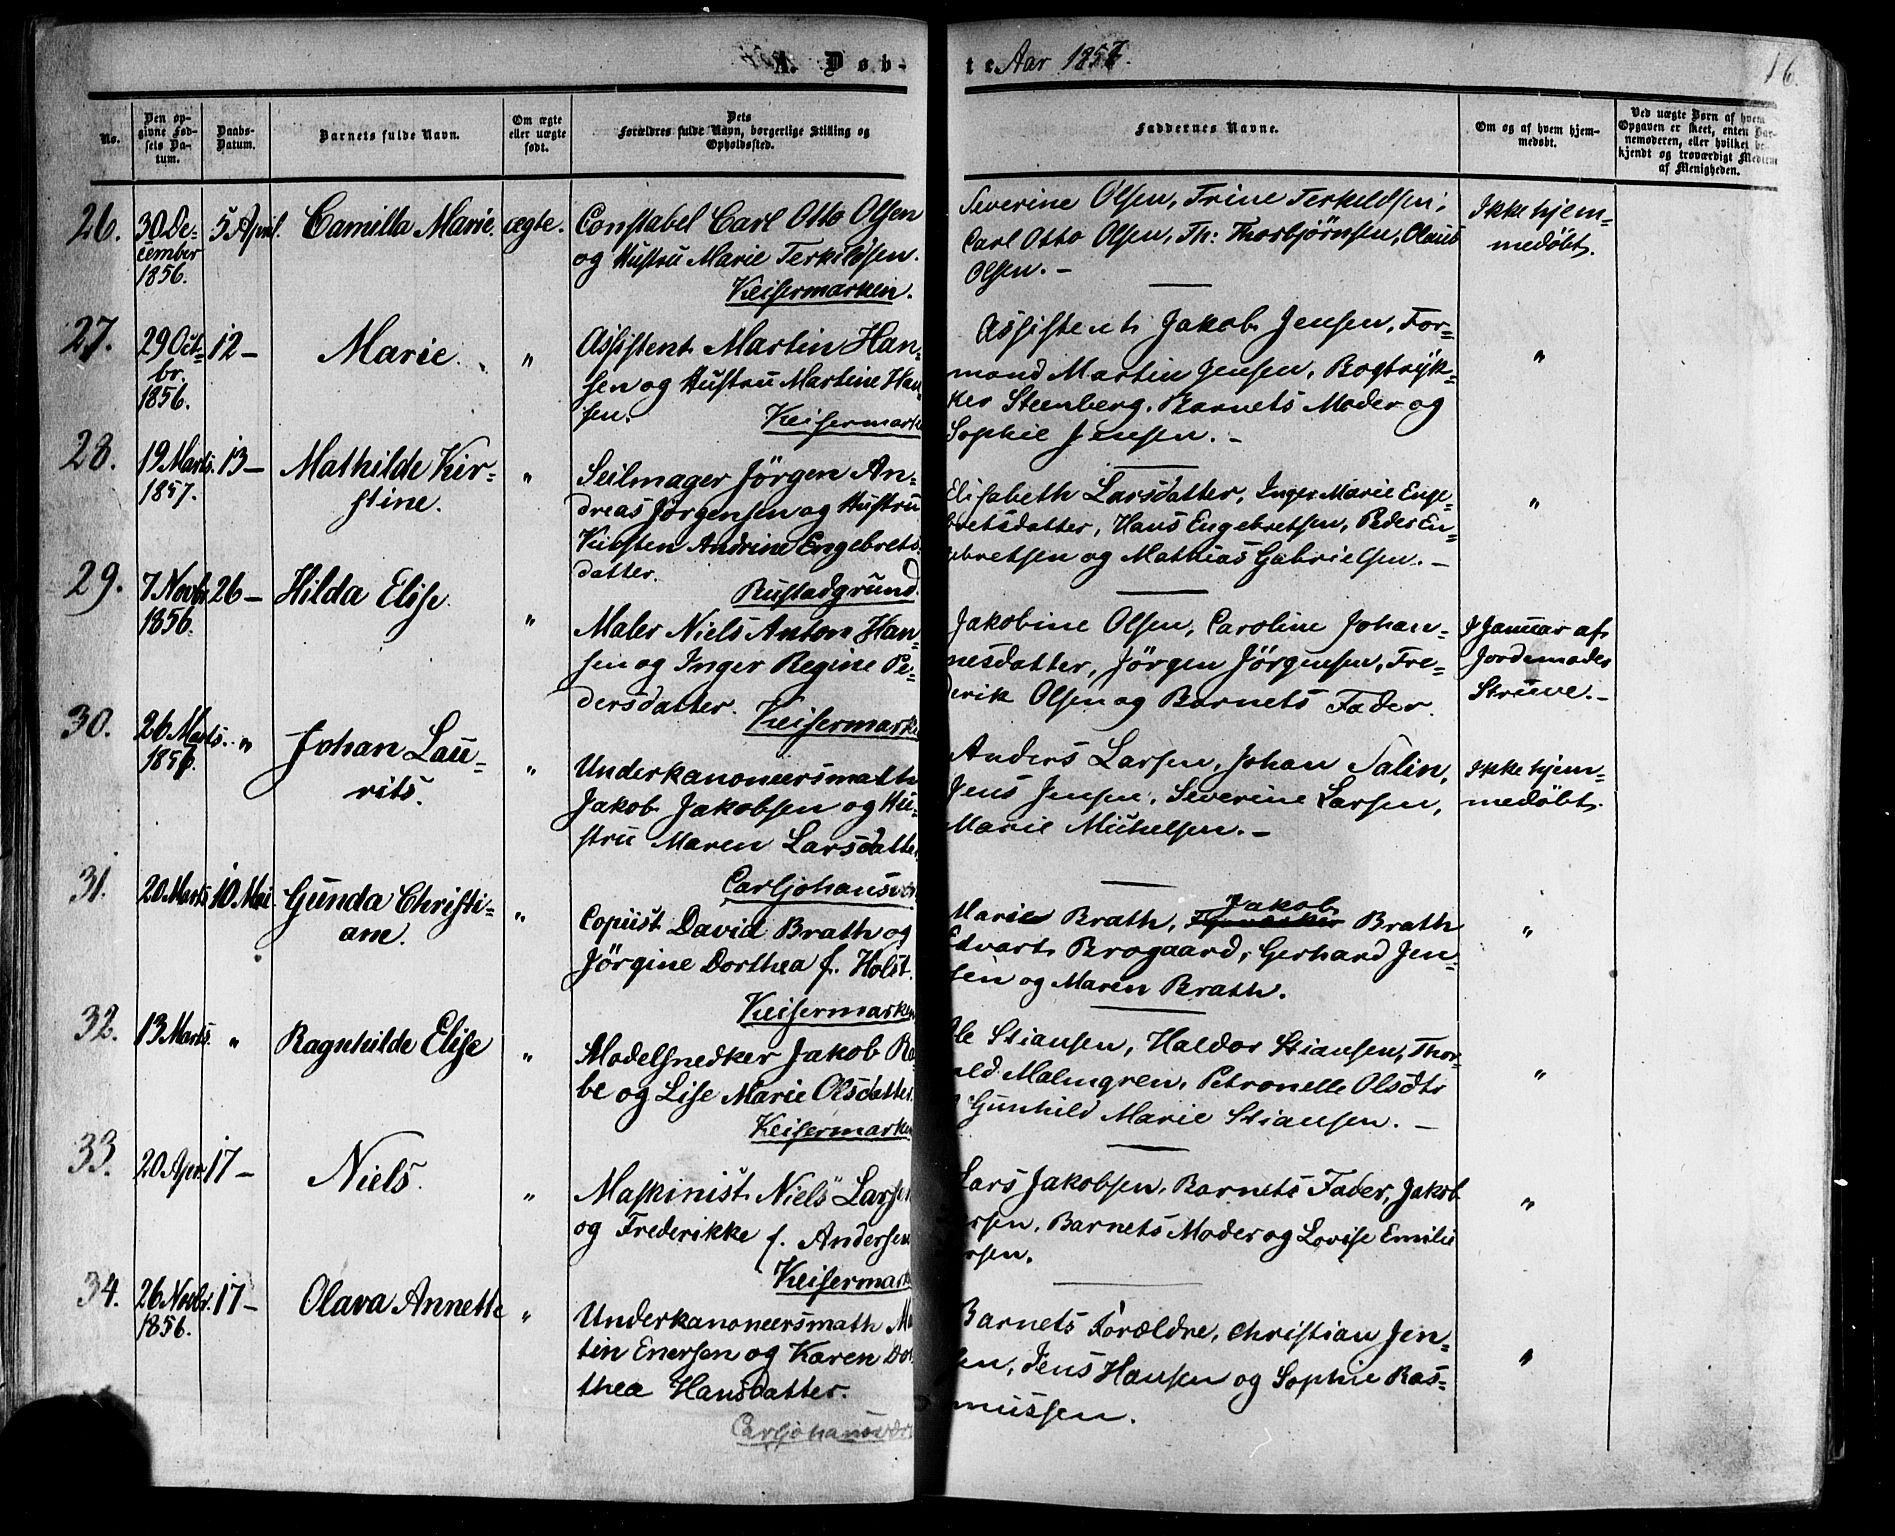 A. Døb-
te Aar 1857.
16.
No.
Den op-
givne Fød-
sels Da-
tum.
Daabs-
Datum.
Barnets fulde Navn.
Om ægte
eller uægte
født.
Dets
Forældres fulde Navn, borgerlige Stilling og
Opholdssted.
Faddernes Navne.
Om og af hvem hjem-
medøbt.
Ved uægte Børn af hvem
Opgaven er skeet, enten Bar-
nemoderen, eller hvilket be-
kjendt og troværdigt Medlem
af Menigheden.
26.
30 De-
cember
1856.
5 April.
Camilla Marie.
ægte.
Constabel Carl Otto Olsen
og Hustru Marie Terkildsen.
Keisermarken.
Severine Olsen, Trine Terkildsen,
Carl Otto Olsen, Th: Thorbjørnsen, Olaus
Olsen. –
Ikke hjem-
medøbt.
27.
29 Oct-
br.
1856.
12 –
Marie.
"
Assistent Martin Han-
sen og Hustru Martine Han
sen.
Keisermarke
Assistent Jakob Jensen, For-
mand Martin Jensen, Bogtryk-
ker Steenberg, Barnets Moder og
Sophie Jensen. –
"
28.
19 Marts.
1857.
13 –
Mathilde Kir-
stine.
"
Seilmager Jörgen An-
dreas Jörgensen og Hustru
Kirsten Andrine Engebrets
datter.
Rustadgrund.
Elisabeth Larsdatter, Inger Marie Enge-
bretsdatter, Hans Engebretsen, Peder En-
gebretsen og Mathias Gabrielsen. –
"
29.
7 Novbr
1856.
26 –
Hilda Elise.
"
Maler Niels Anton Han-
sen og Inger Regine Pe-
dersdatter.
Keisermarke
Jakobine Olsen, Caroline Johan-
nesdatter, Jörgen Jörgensen, Fre-
derik Olsen og Barnets Fader.
I Januar af
Jordemoder
Struve. –
30.
26 Marts.
1857.
"
Johan Lau-
rits.
"
Underkanoneersmath
Jakob Jakobsen og Hu-
stru Maren Larsdatter
Carljohansvær
Anders Larsen, Johan Salin,
Jens Jensen, Severine Larsen,
Marie Mickelsen. –
Ikke hjem-
medøbt.
31.
20 Marts
10 Mai.
Gunda Christi-
ane.
"
Copiist David Brath og
Jörgine Dorthea f. Holst.
Keisermarken
Jakob
Marie Brath, Brath
Edvart Brogaard, Gerhard Jen-
sen og Maren Brath.
"
32.
13 Marts.
"
Ragnhilde Elise
"
Modelsnedker Jakob Ra
be og Lise Marie Olsdatter.
Keisermarken
Ole Stiansen, Haldor Stiansen, Thor-
vald Malmgren, Petronelle Olsdtr
Gunhild Marie Stiansen. –
"
33.
20 Apr.
17 –
Niels.
"
Maskinist Niels Larsen
og Frederikke f. Andersen
Keisermark
Lars Jakobsen, Barnets Fader, Jakob
rsen, Barnets Moder og Lovise Emilie
rsen.
"
34.
26 Novbr.
1856.
17 –
Olava Annette
"
Underkanoneersmath Ma
tin Enersen og Karen Dor
thea Hansdatter.
Carljohansvær
Barnets Forældre, Christian Jen-
sen, Jens Hansen og Sophie Ras-
mussen.
"